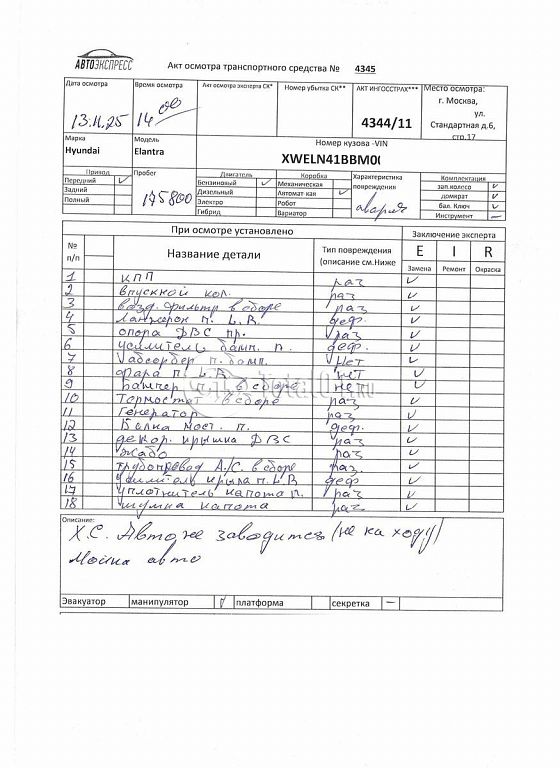 АВТОЭКСПРЕСС
Акт осмотра транспортного средства № 4345
Дата осмотра
Время осмотра
Акт осмотра эксперта СК*
Номер убытка СК**
АКТ ИНГОССТРАХ***
Место осмотра:
13.11.25
14 00
4344/11
г. Москва,
ул.
Стандартная д.6,
стр.17
Марка
Модель
Номер кузова -VIN
Hyundai
Elantra
XWELN41BBM0(
Привод
Пробег
Двигатель
Коробка
Характеристика повреждения
Комплектация
Передний ✓
175800
Бензиновый ✓
Механическая
авария
зап.колесо ✓
Задний
Дизельный
Автомат кая ✓
домкрат ✓
Полный
Электро
Робот
бал. Ключ ✓
Гибрид
Вариатор
Инструмент –
При осмотре установлено
Заключение эксперта
№ п/п
Название детали
Тип повреждения (описание см.Ниже
E I R
Замена Ремонт Окраска
1 КПП раз ✓
2 впускной кол. раз ✓
3 возд. фильтр в сборе раз ✓
4 Ланжерон п. L.R. деф. ✓
5 опора ДВС пр. раз ✓
6 усилитель бамп. п. деф. ✓
7 абсорбер п. бамп. нет ✓
8 фара п. L.R нет ✓
9 Бампер п. в сборе нет ✓
10 Термостат в сборе раз ✓
11 Генератор раз ✓
12 Балка мост. п. деф. ✓
13 декор. крышка ДВС раз ✓
14 Жабо раз ✓
15 трубопровод А/С в сборе раз. ✓
16 усилитель крыла п. L.R деф ✓
17 уплотнитель капота п. раз ✓
18 шумка капота раз ✓
Описание:
Х.С. Авто не заводится (не на ходу)
Мойка авто
Эвакуатор манипулятор платформа секретка –